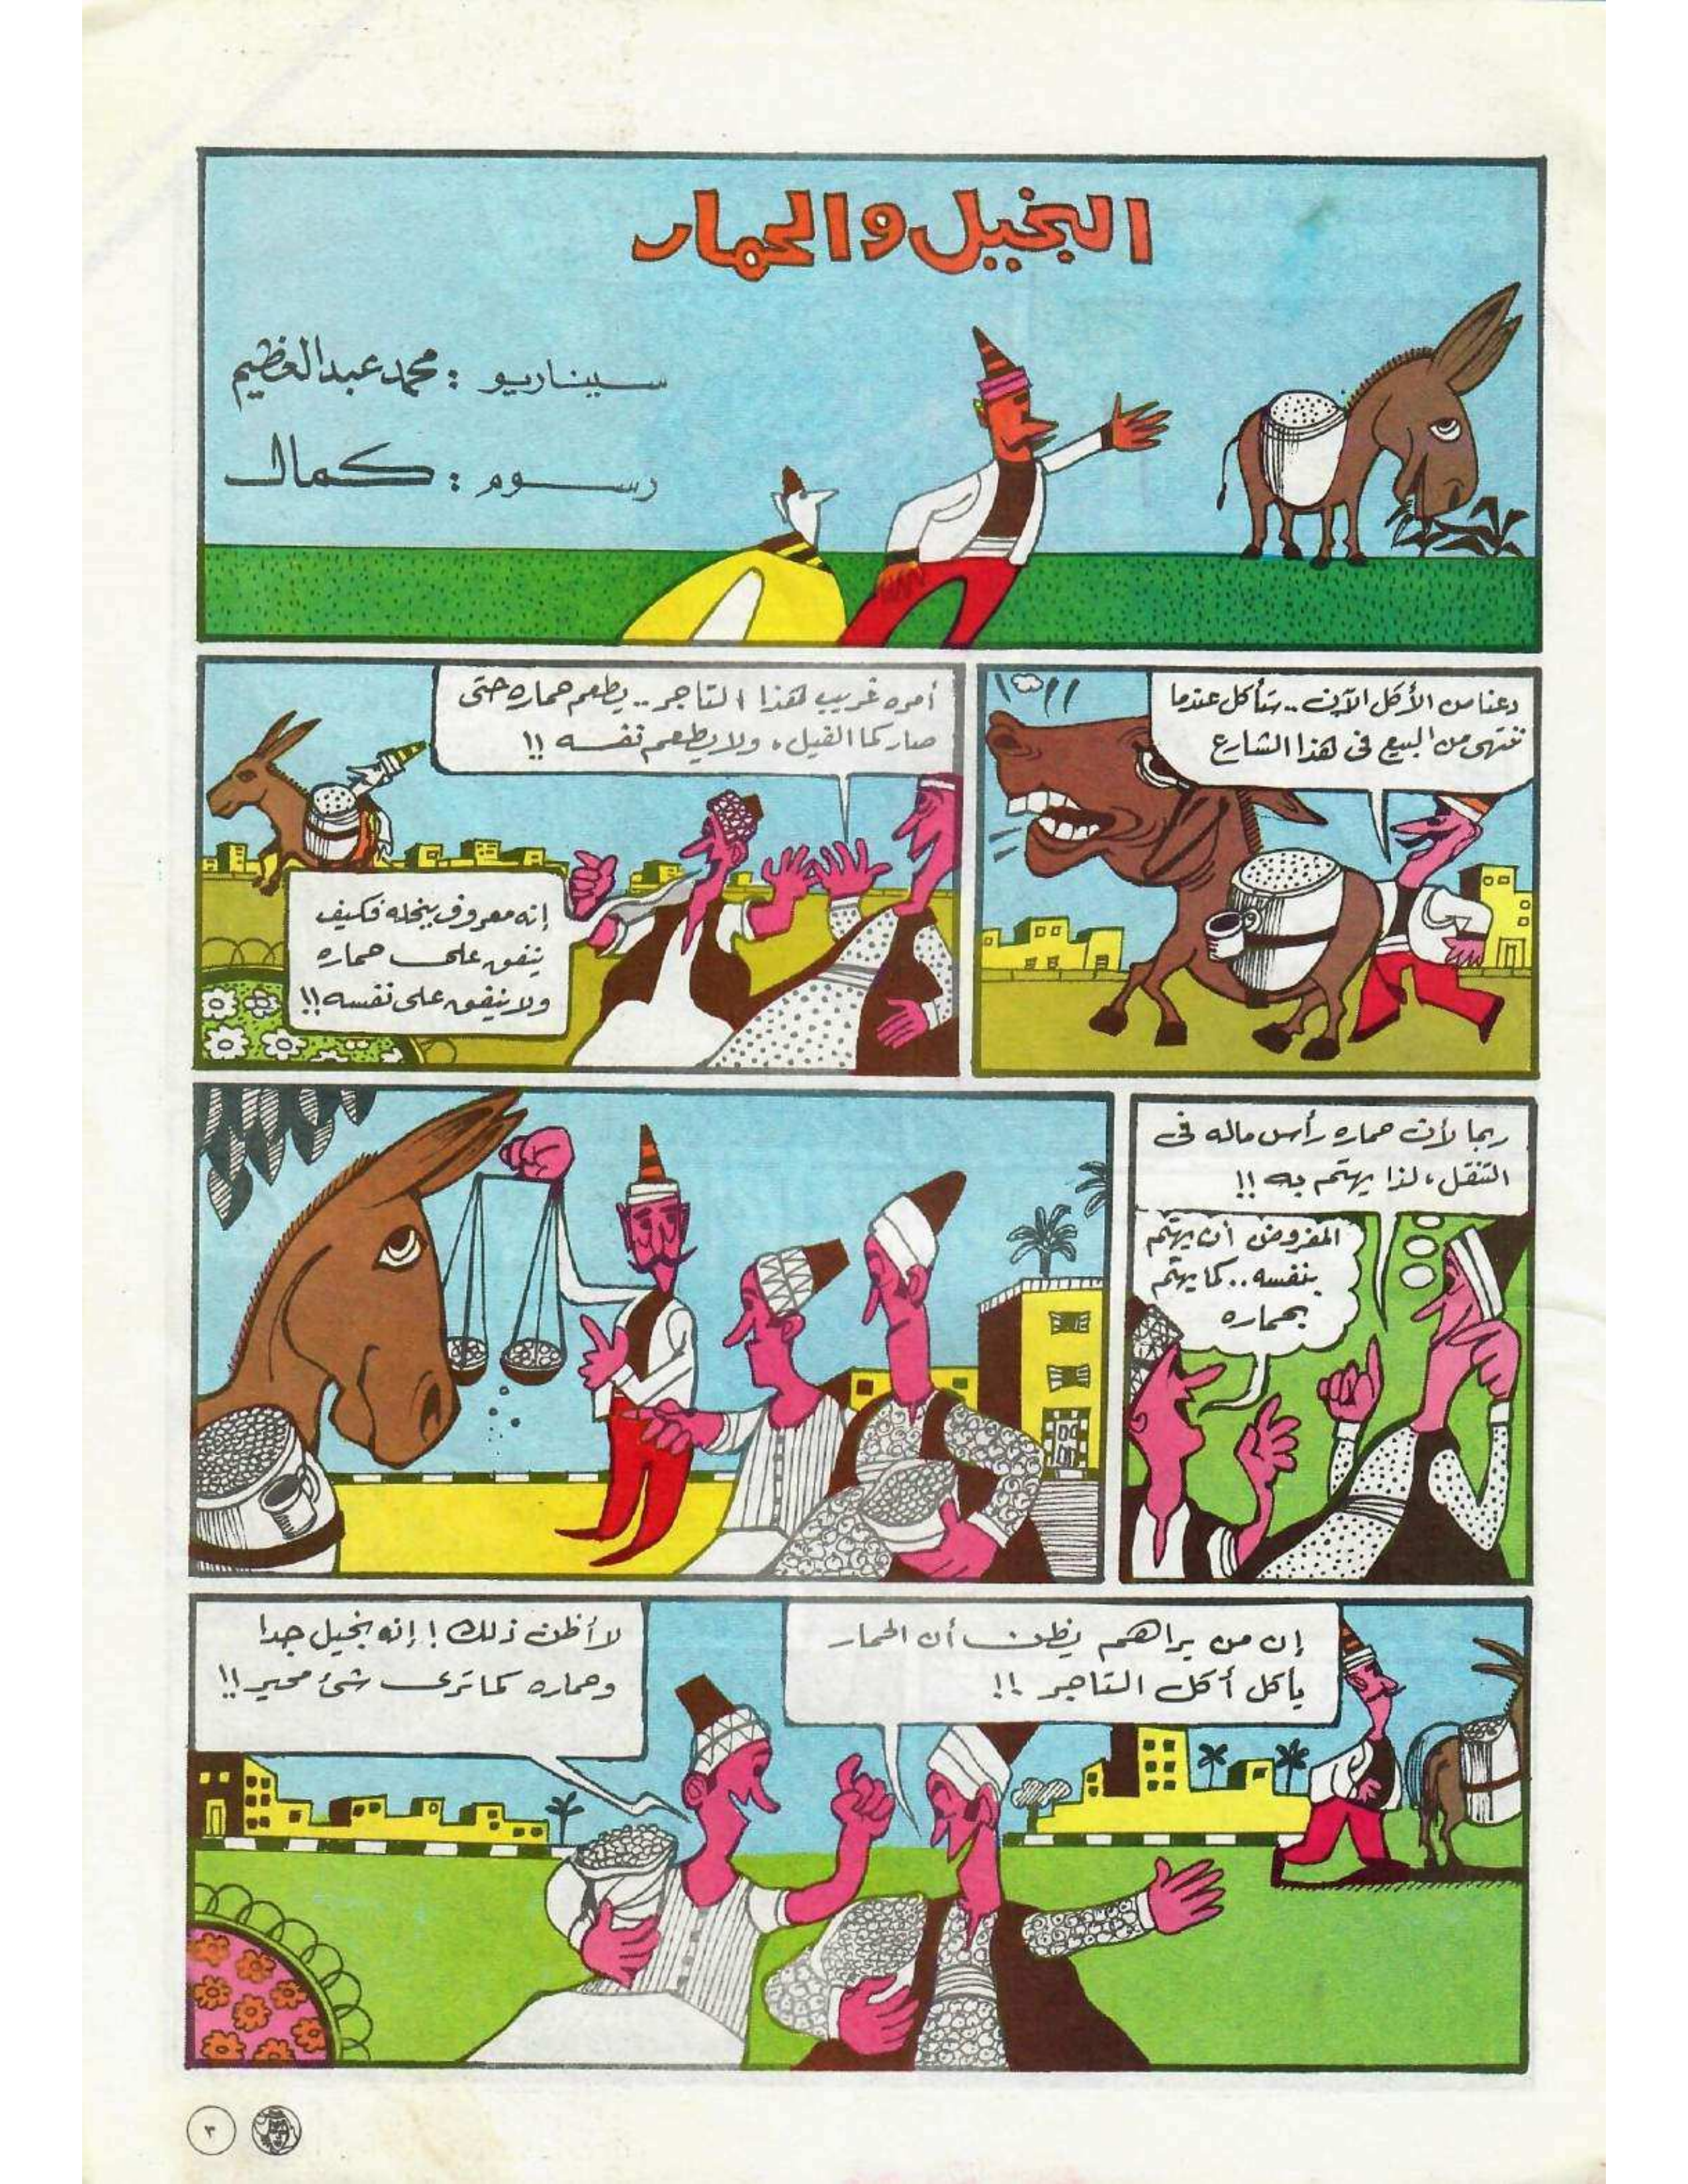 البخيل والحمار
سيناريو : محمد عبدالعظيم
رسوم : كمال
دعنا من الأكل الآن .. ستأكل عندما
ننتهى من البيع فى هذا الشارع
أمره غريب هذا التاجر .. يطعم حماره حتى
صار كما الفيل ، ولا يطعم نفسه !!
إنه معروف ببخله فكيف
ينفق على حماره
ولا ينفق على نفسه !!
ربما لأن حماره رأس ماله فى
التنقل ، لذا يهتم به !!
المفروض أن يهتم
بنفسه .. كما يهتم
بحماره
إن من يراهم يظن أن الحمار
يأكل أكل التاجر !!
لا أظن ذلك ! إنه بخيل جدا
وحماره كما ترى شئ محير !!
٣